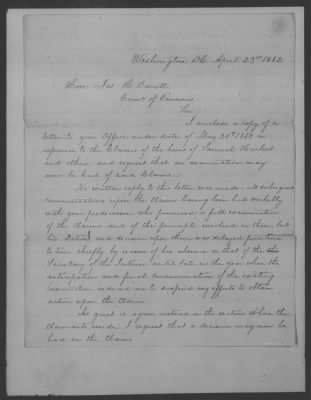 Washington D.C. April 23rd 1862
Hon Jos H. Barrett
Comr of Pensions
Sir
I enclose a copy of a
letter to your Office under date of May 20th 1860 in
reference to the Claims of the heirs of Samuel
and others and request that an examination may
now be had of said Claims.
No written reply to this letter was made all subsequent
communications upon the Claims having been had verbally
with your predecessor who promised a full examination
of the Claims and of the principle involved in them, but
his action and decision upon them was delayed from time
to time chiefly by reason of his absence or that of the
Secretary of the Interior until late in the year when the
anticipation and final consummation of the existing
insurrection induced me to suspend my efforts to obtain
action upon the Claims.
As quiet is again restored in the section where the
Claimants reside I request that a decision may now be
had on the Claims